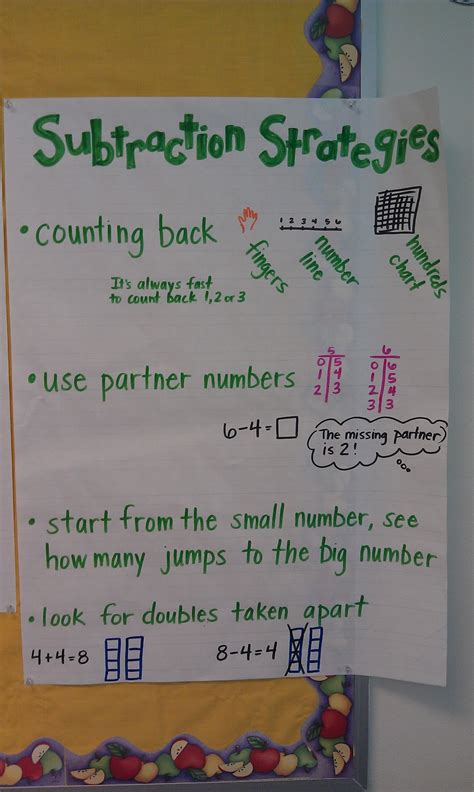 Subtraction Strategies
• counting back
fingers
1 2 3 4 5 6
number
line
hundreds
chart
It's always fast
to count back 1, 2 or 3
• use partner numbers
5
0 5
1 4
2 3
6
0 6
1 5
2 4
3 3
6-4=□
The missing partner
is 2!
• start from the small number, see
how many jumps to the big number
• look for doubles taken apart
4+4=8
8-4=4